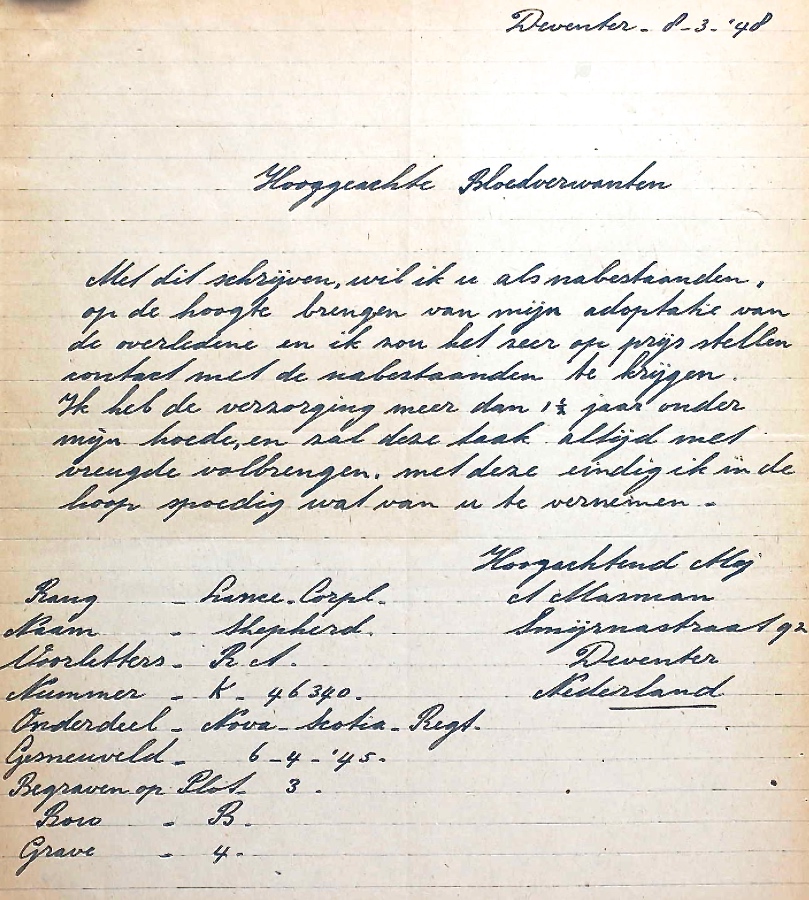 Deventer - 8-3-'48
Hooggeachte Bloedverwanten
Met dit schrijven, wil ik u als nabestaanden,
op de hoogte brengen van mijn adoptatie van
de overledene en ik zou het zeer op prijs stellen
contact met de nabestaanden te krijgen.
Ik heb de verzorging meer dan 1½ jaar onder
mijn hoede, en zal deze taak altijd met
vreugde volbrengen. met deze eindig ik in de
hoop spoedig wat van u te vernemen -
Hoogachtend Mej
A Masman
Smijrnastraat 92
Deventer
Nederland
Rang - Lance-Corpl.
Naam - Shepherd.
Voorletters - R.A.
Nummer - K - 46340.
Onderdeel - Nova-Scotia-Regt.
Gesneuveld - 6-4-'45.
Begraven op Plot - 3.
Row - B.
Grave - 4 -